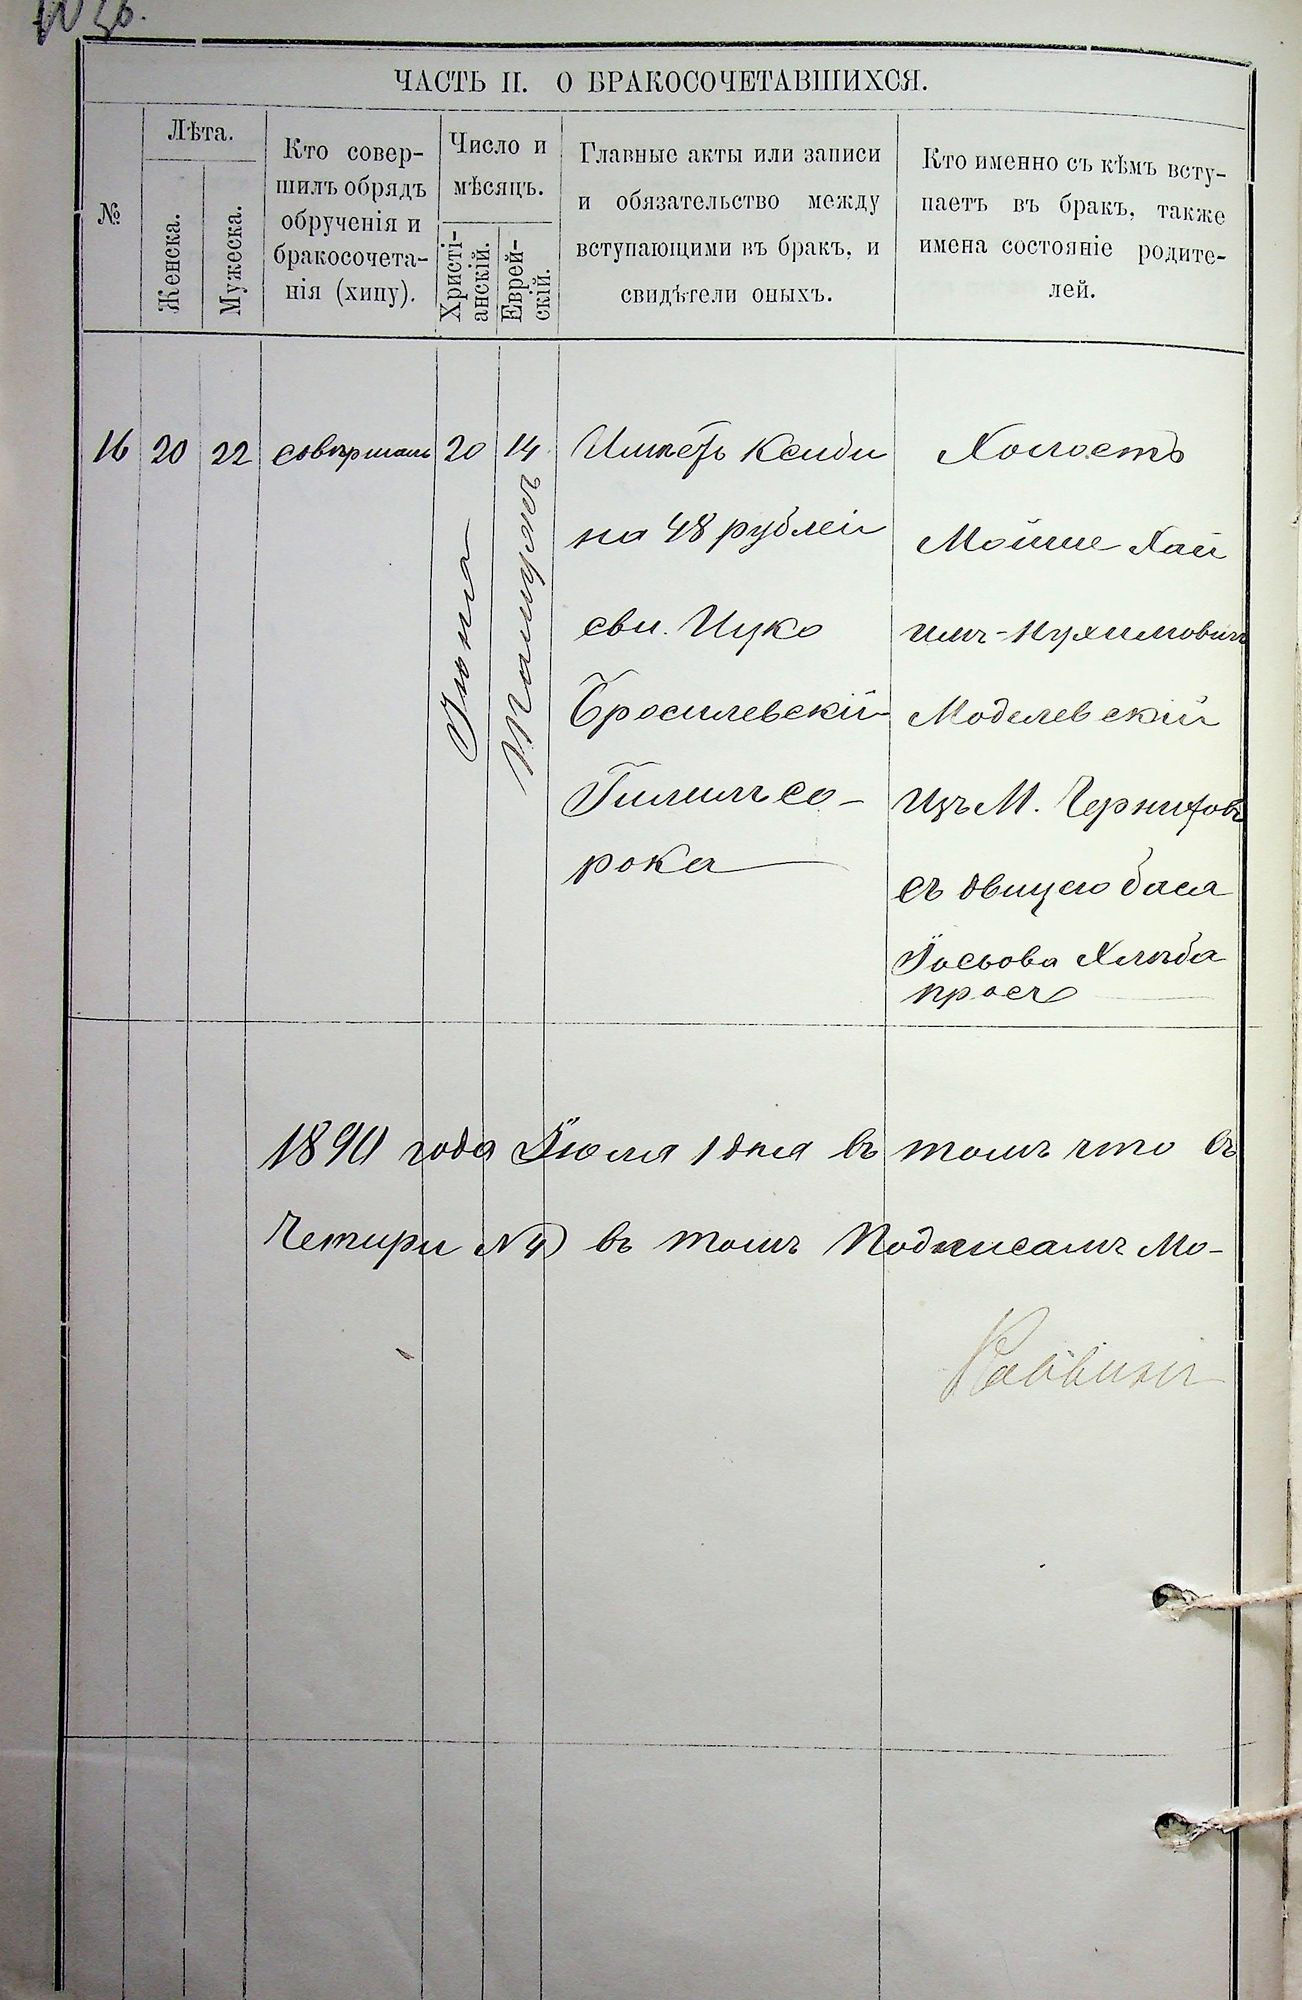 ЧАСТЬ II. О БРАКОСОЧЕТАВШИХСЯ.
№
Лѣта.
Женска.
Мужеска.
Кто совер-
шилъ обрядъ
обрученія и
бракосочета-
нія (хипу).
Число и
мѣсяцъ.
Христі-
анскій.
Еврей-
скій.
Главные акты или записи
и обязательство между
вступающими въ бракъ, и
свидѣтели оныхъ.
Кто именно съ кѣмъ всту-
паетъ въ бракъ, также
имена состояніе родите-
лей.
16
20
22
совершалъ
20
Іюня
14
на 48 рублей
сви. Ицко
Бросилевскій
со-
рока
Холостъ
Мойше Хаи
имъ-Нухимовичъ
Моделевскій
Изъ М. Черняховъ
съ двицею Бася
Іосьова Хлѣба
1890 года Іюля 1 дня въ томъ что въ
Четири №4) въ томъ Подписамъ Мо-